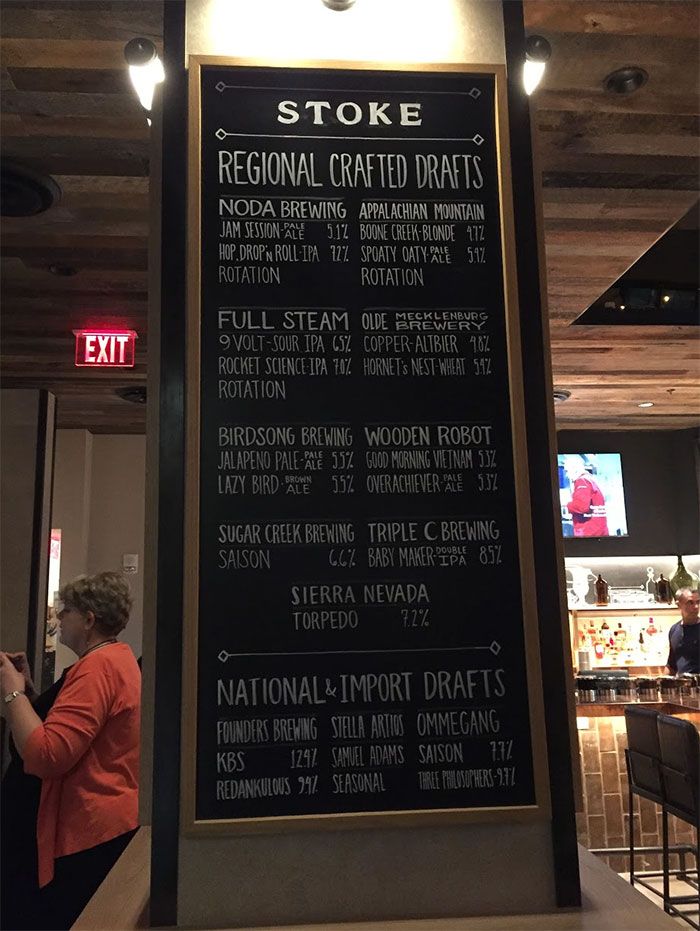 STOKE
REGIONAL CRAFTED DRAFTS
NODA BREWING
JAM SESSION-PALE ALE 5.1%
HOP, DROP'N ROLL-IPA 7.2%
ROTATION
APPALACHIAN MOUNTAIN
BOONE CREEK-BLONDE 4.7%
SPOATY OATY-PALE ALE 5.4%
ROTATION
FULL STEAM
9 VOLT-SOUR IPA 6.5%
ROCKET SCIENCE-IPA 7.0%
ROTATION
OLDE MECKLENBURG BREWERY
COPPER-ALTBIER 4.8%
HORNET'S NEST-WHEAT 5.4%
BIRDSONG BREWING
JALAPENO PALE-PALE ALE 5.5%
LAZY BIRD-BROWN ALE 5.5%
WOODEN ROBOT
GOOD MORNING VIETNAM 5.3%
OVERACHIEVER-PALE ALE 5.3%
SUGAR CREEK BREWING
SAISON 6.6%
TRIPLE C BREWING
BABY MAKER-DOUBLE IPA 8.5%
SIERRA NEVADA
TORPEDO 7.2%
NATIONAL & IMPORT DRAFTS
FOUNDERS BREWING
KBS 12.4%
REDANKULOUS 9.4%
STELLA ARTIOS
SAMUEL ADAMS
SEASONAL
OMMEGANG
SAISON 7.7%
THREE PHILOSOPHERS-9.7%
EXIT